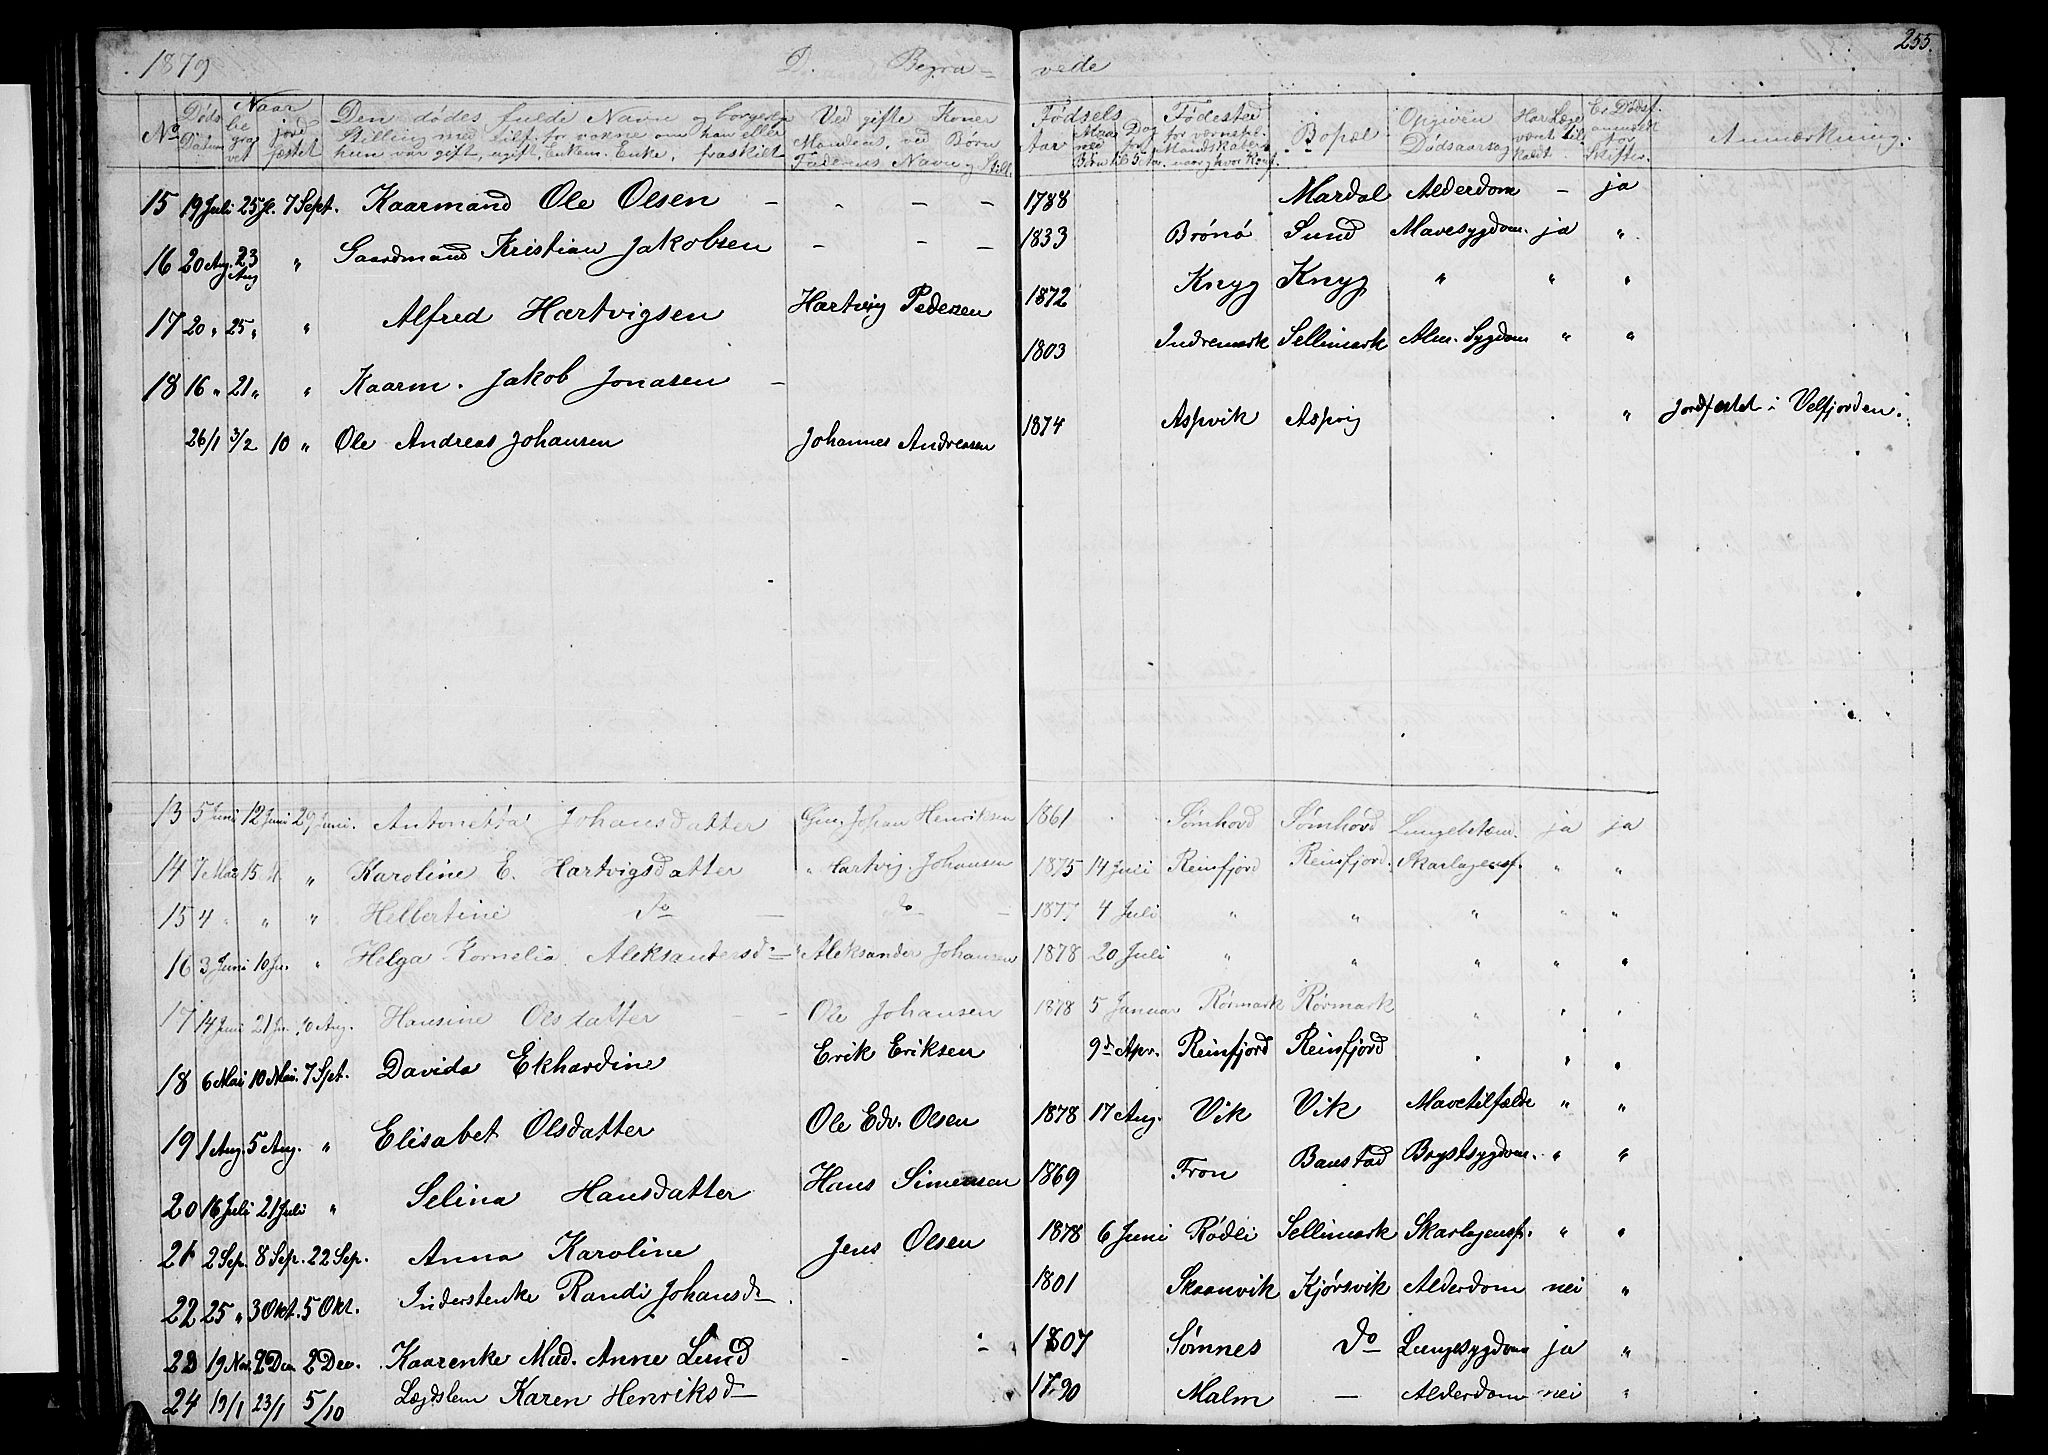 1879 D. Begra= vede 255.
No Døds Datum Naar be gra vet jord fæstet Den dødes fulde Navn og borgerlige Stilling med Tilf. for voxne om han eller hun var gift, ugift, Enkem. Enke, fraskilt Ved gifte Koner Mandens, ved Børn Faderens Navn og Stil. Fødsels Aar Maa ned Dag for Børn u. 5 Aar. Fødested for vernepl. Mandskaber naar og hvor Konf. Bopæl Opgiven Dødsaarsag Har Læge været til kaldt Er Dødsf. anmeldt for Skifter. Anmærkning.
15 19 Juli 25 Jl. 7 Sept. Kaarmand Ole Olsen - - - - 1788 Mardal Alderdom - ja
16 20 Aug. 23 Aug " Gaardmand Kristian Jakobsen - - - 1833 Brønø Sund Mavesygdom. ja "
17 20 " 25 " " Alfred Hartvigsen Hartvig Pedersen 1872 Knyg Knyg " " "
18 16 " 21 " " Kaarm. Jakob Jonasen - 1803 Indremark Sellimark Alm. Sygdom " "
26/1 3/2 10 " Ole Andreas Johansen Johannes Andreasen 1874 Aspvik Aspvig " Jordfestet i Velfjorden.
13 5 Juni 12 Juni 29 Juni. Antonetta Johansdatter Gm. Johan Henriksen 1861 Sømhovd Sømhovd Lungebetænd. ja ja
14 7 Mai 15 M. " Karoline E. Hartvigsdatter " Hartvig Johansen 1875 14 Juli Reinfjord Reinsfjord. Skarlagensf. " "
15 4 " " " Helbertine Do - Do - 1877 4 Juli " " " " "
16 3 Juni 10 Jn. " Helga Kornelia Aleksandersd - " Aleksander Johansen 1878 20 Juli " " " " "
17 14 Juni 21 Jn. 10 Aug. Hansine Olsdatter - - Ole Johansen 1878 5 Januar Rørmark Rørmark " " "
18 6 Mai 10 Mai. 7 Spt. Davida Ekhardine Erik Eriksen 9d Apr. Reinfjord Reinsfjord " " "
19 1 Aug. 5 Aug. " Elisabet Olsdatter Ole Edv. Olsen 1878 17 Aug. Vik Vik Mavetilfælde " "
20 16 Juli 21 Juli " Selina Hansdatter Hans Simensen 1869 Fron Baustad Brystsygdom. " "
21 2 Sep. 8 Sep. 22 Sep. Anna Karoline Jens Olsen 1878 6 Juni Rødli Sellimark Skarlagensf. " "
22 25 " 3 Okt. 5 Okt. Inderstenke Randi Johansd - 1801 Skaanvik Kjørsvik Alderdom nei "
23 19 Nov. 2 Dec 2 Dec. Kaarenke Mad. Anne Lund - - 1807 Sømnes Do Lungesygdom ja "
24 19/1 23/1 5/10 Lægdslem Karen Henriksd - 1790 Malm - Alderdom nei "